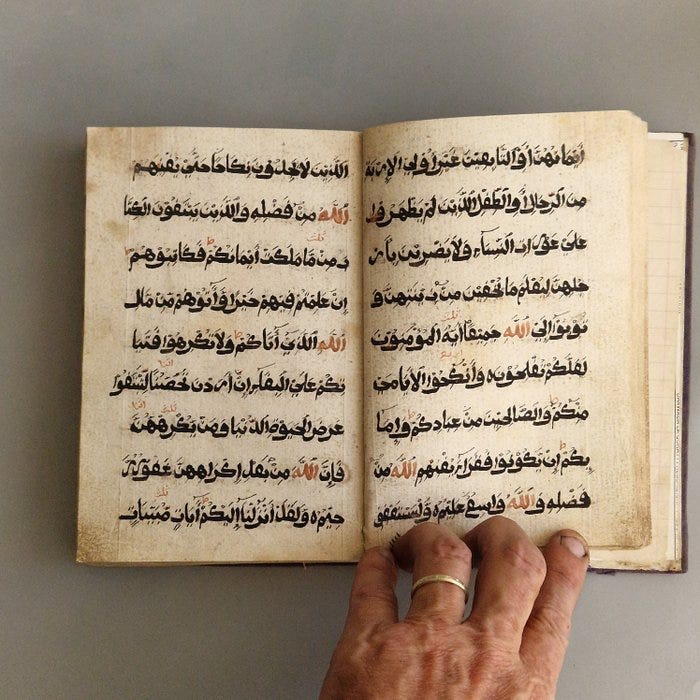 أيمانهن أو التابعين غير أولي الإربة
من الرجال أو الطفل الذين لم يظهروا
على عورات النساء ولا يضربن بأر
جلهن ليعلم ما يخفين من زينتهن و
توبوا إلى الله جميعا أيه المؤمنون
لعلكم تفلحون وأنكحوا الأيامى
منكم والصالحين من عبادكم وإما
ئكم إن يكونوا فقراء يغنهم الله من
فضله والله واسع عليم وليستعفف
الذين لا يجدون نكاحا حتى يغنيهم
الله من فضله والذين يبتغون الكتا
ب من ما ملكت أيمانكم فكاتبوهم
إن علمتم فيهم خيرا وآتوهم من مال
الله الذي آتاكم ولا تكرهوا فتيا
تكم على البغاء إن أردن تحصنا لتبتغوا
عرض الحيوة الدنيا ومن يكرههن
فإن الله من بعد إكراههن غفور ر
حيم ولقد أنزلنا إليكم آيات مبينات